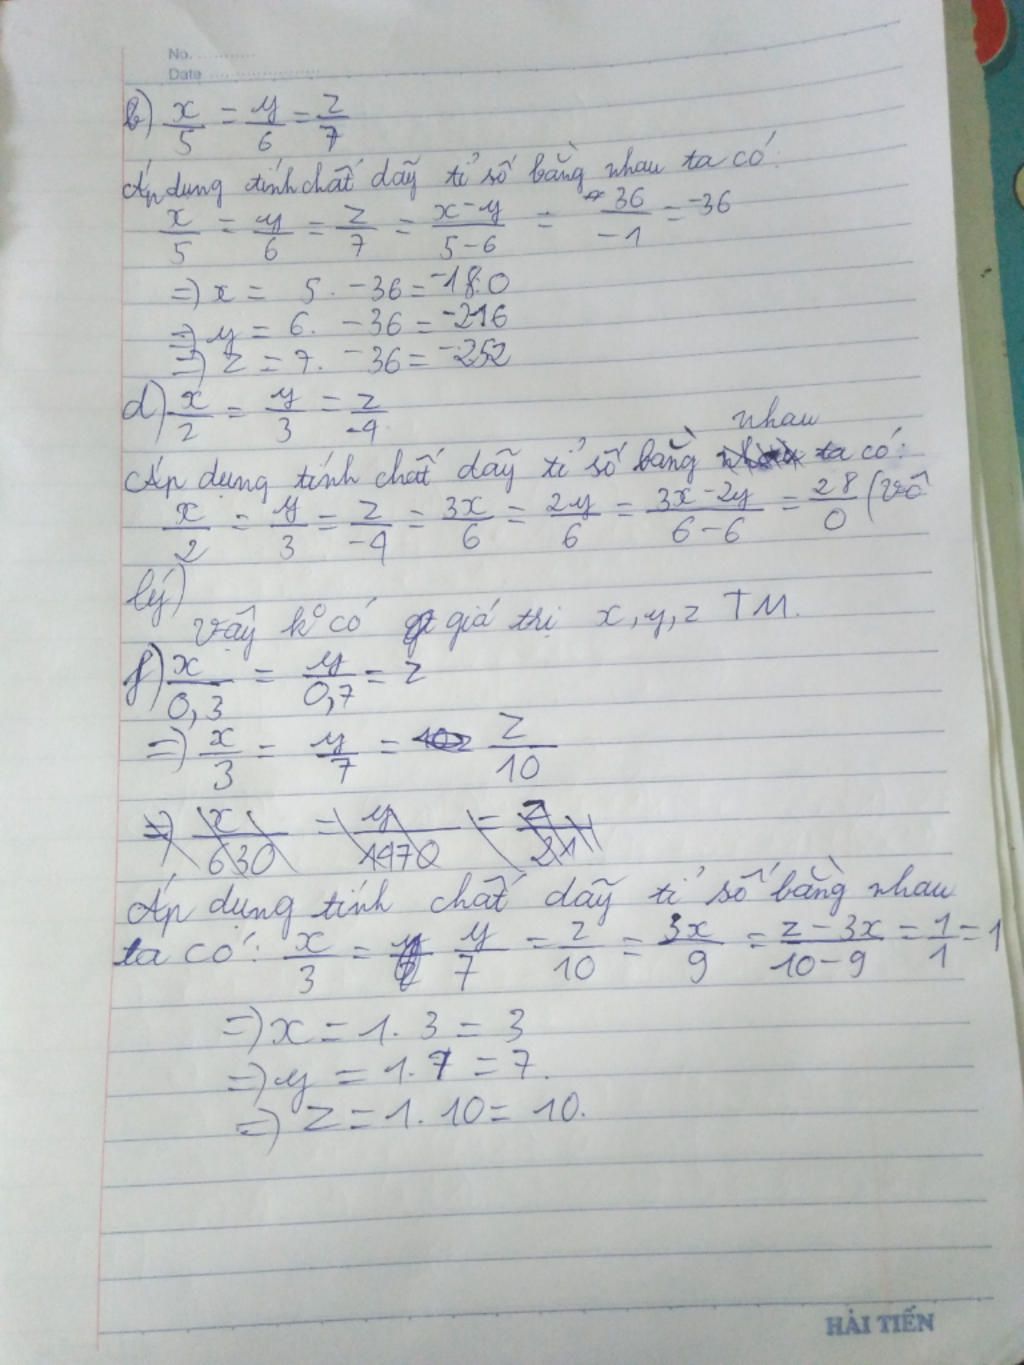 No. ............
Date ........................
b) x/5 = y/6 = z/7
Áp dụng tính chất dãy tỉ số bằng nhau ta có:
x/5 = y/6 = z/7 = (x-y)/(5-6) = 36/-1 = -36
=> x = 5 . -36 = -180
=> y = 6. -36 = -216
=> z = 7. -36 = -252
d) x/2 = y/3 = z/-4
Áp dụng tính chất dãy tỉ số bằng nhau ta có:
x/2 = y/3 = z/-4 = 3x/6 = 2y/6 = (3x-2y)/(6-6) = 28/0 (vô
lý)
Vậy k° có giá trị x, y, z TM.
f) x/0,3 = y/0,7 = z
=> x/3 = y/7 = z/10
Áp dụng tính chất dãy tỉ số bằng nhau
ta có: x/3 = y/7 = z/10 = 3x/9 = (z-3x)/(10-9) = 1/1 = 1
=> x = 1. 3 = 3
=> y = 1. 7 = 7.
=> z = 1. 10 = 10.
HẢI TIẾN